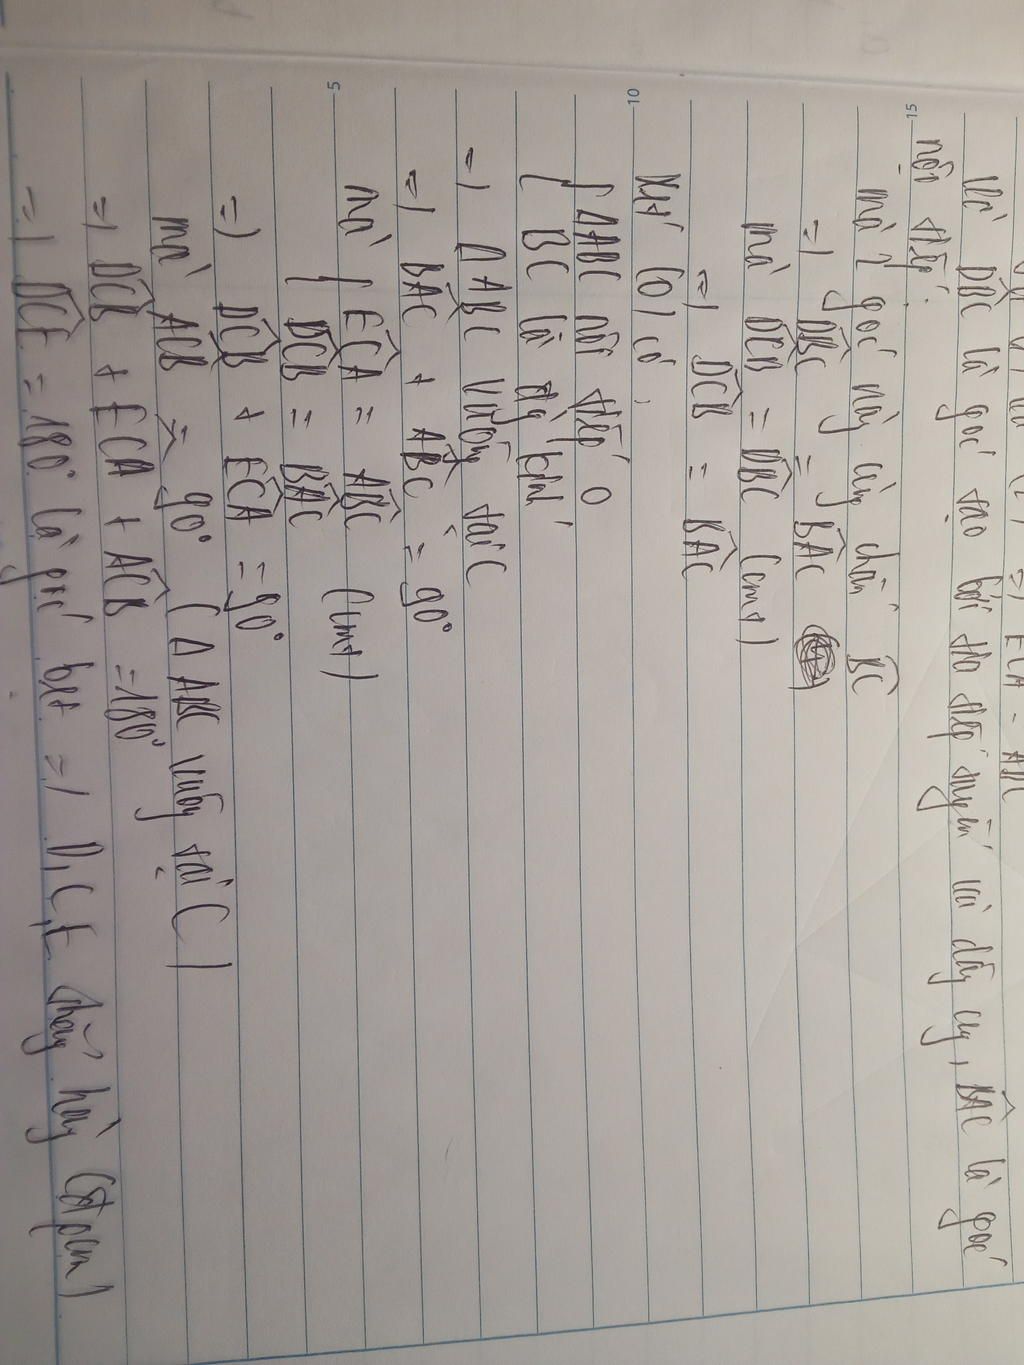 =) ECA = ABC
Và DBC là góc tạo bởi tia tiếp tuyến và dây cung, BAC là góc
nội tiếp.
mà 2 góc này cùng chắn BC
=) DBC = BAC
mà DCB = DBC (cmt)
=) DCB = BAC
10
Xét (O) có
{ ΔABC nội tiếp O
BC là đg kính
=) ΔABC vuông tại C
=) BAC + ABC = 90°
5
mà { ECA = ABC (cmt)
DCB = BAC
=) DCB + ECA = 90°
mà ACB = 90° (ΔABC vuông tại C)
=) DCB + ECA + ACB = 180°
=) DCE = 180° là góc bẹt =) D, C, E thẳng hàng (đpcm)
15